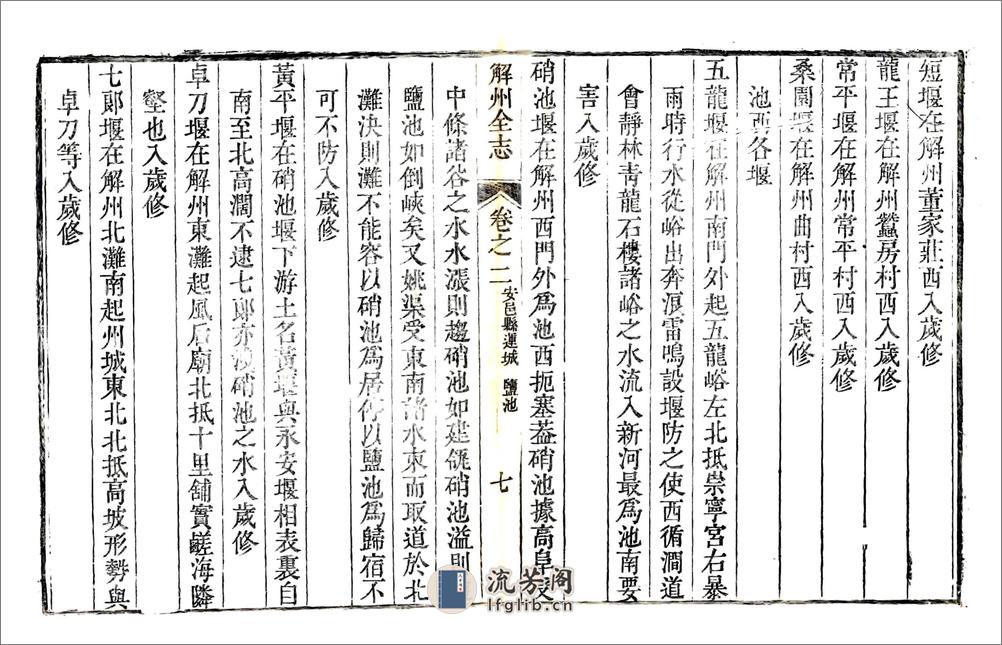 短堰在解州董家莊西入歲修
龍王堰在解州蠶房村西入歲修
常平堰在解州常平村西入歲修
桑園堰在解州曲村西入歲修
池西各堰
五龍堰在解州南門外起五龍峪左北抵崇寧宮右暴
雨時行水從峪出奔浪雷鳴設堰防之使西循澗道
會靜林青龍石樓諸峪之水流入新河最爲池南要
害入歲修
硝池堰在解州西門外爲池西扼塞葢硝池據高阜受
解州全志
卷之二
安邑縣運城
鹽池
七
中條諸谷之水水漲則趨硝池如建瓴硝池溢則
鹽池如倒峽矣又姚渠受東南諸水東而取道於北
灘決則灘不能容以硝池爲居停以鹽池爲歸宿不
可不防入歲修
黃平堰在硝池堰下游土名黃堰與永安堰相表裏自
南至北高濶不逮七郞亦硝池之水入歲修
卓刀堰在解州東灘起風后廟北抵十里舖實鹺海隣
壑也入歲修
七郞堰在解州北灘南起州城東北北抵高坡形勢與
卓刀等入歲修
流芳阁
lfglib.cn